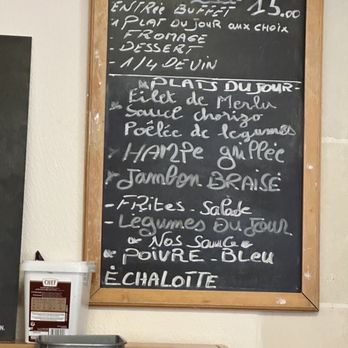 ENTRÉE BUFFET 15.00
- 1 PLAT DU JOUR AUX CHOIX
- FROMAGE
- DESSERT
- 1/4 DE VIN
PLATS DU JOUR
Filet de Merlu
Sauce chorizo
Poêlée de legumes
HAMPE grillée
Jambon BRAISE
- FRITES - Salade
- Legumes Du Jour
Nos Sauce
POIVRE - Bleu
ÉCHALOTTE
CHEF